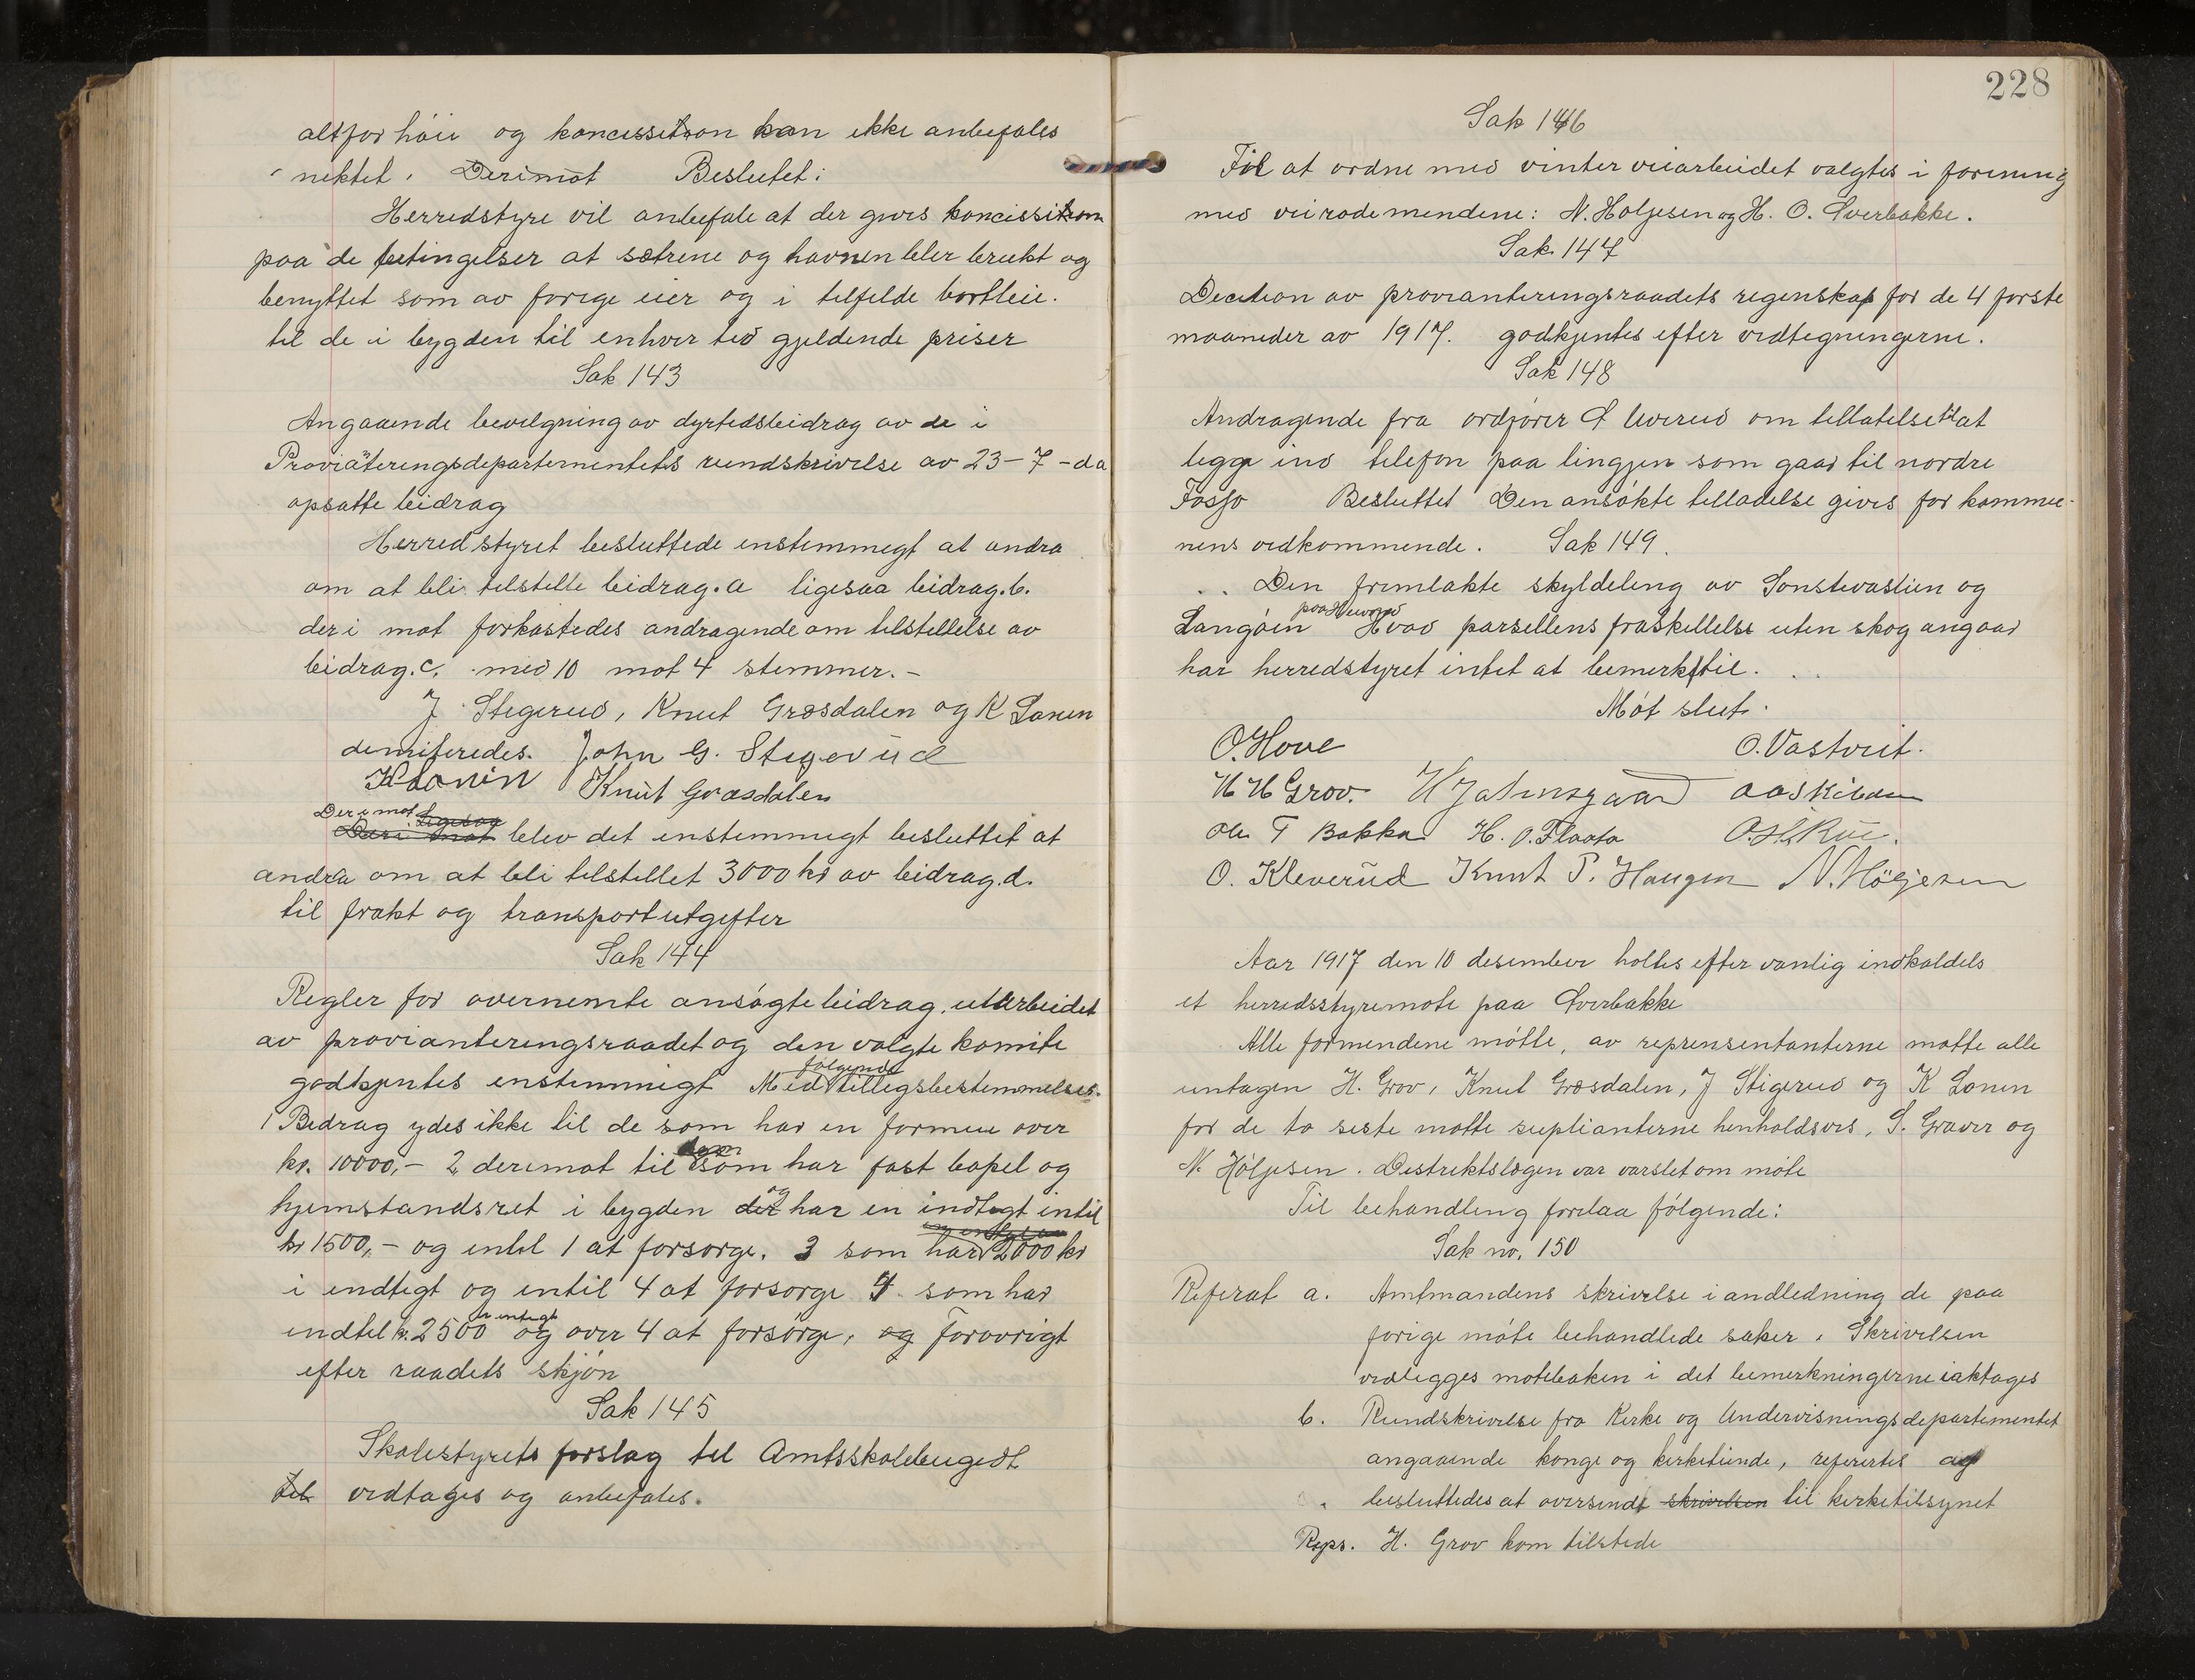 altfor høie og koncessitson kan ikke anbefales
nektet. Derimot Beslutet:
Herredstyre vil anbefale at der gives koncissitson
paa de betingelser at sætrene og havnen bler brukt og
benyttet som av forige eier og i telfelde bortleie.
til de i bygden til enhver tid gjeldende priser
Sak 143
Angaaende bevilgning av dyrtidsbeidrag av de i
Proviäteringsdepartementets rundskrivelse av 23-7-da
opsatte beidrag
Herredstyret besluttede enstemmegt at andra
om at bli telstelle beidrag. a ligesaa beidrag. b.
der i mot forkastedes andragende om telstellelse av
beidrag. c. med 10 mot 4 stemmer.-
J. Stegerud, Knut Græsdalen og K Lonen
demiteredes. John G. Stegerud
K Lonin Knut Græsdalen
Der i mot ligesaa
Deri mot blev det enstemmegt besluttet at
andra om at bli telstellet 3000 kr av beidrag. d.
til frakt og transportutgifter
Sak 144
Regler for overnemte ansøgte beidrag. utarbeidet
av provianteringsraadet og den valgte komite
følgende
godkjentes enstemmigt Med tillegsbestemmelses.
1 Bedrag ydes ikke til de som har en formue over
dem
kr. 10000,- 2 derimot til som har fast bopel og
og
hjemstandsret i bygden der har en indtegt intil
kr 1500,- og intil 1 at forsørge. 3 som har 2000 kr
i indtegt og intil 4 at forsørge 4. som har
i integt
indtel kr. 2500 og over 4 at forsørge, og Forøvrigt
efter raadets skjøn
Sak 145
Skolestyrets forslag til Amtsskolebugedt
til vedtages og anbefales.
228
Sak 146
Til at ordne med vinter veiarbeidet valgtes i forening
med veirodemendene: N. Holjesen og H. O. Øverbakke.
Sak 147
Decition av provianteringsraadets regenskap for de 4 forste
maaneder av 1917. godkjentes efter vedtegningerne.
Sak 148
Andragende fra ordfører O Uverud om tellatelse til at
legge ind telefon paa lingjen som gaar til nordre
Fosso Besluttet Den ansøkte telladelse gives for kommu-
nens vedkommende. Sak 149.
Den fremlakte skyldeling av Sonstevastlien og
paa Hverud
Langøin Hvad parsellens fraskellelse uten skog angaar
har herredstyret intet at bemerke til.
Møt slut.
O. Hove O. Vastveit.
H H Grov. H Jalmsgaard Aaskilden
Ole T Bakka H. O. Flaata O. H. Rue.
O. Kleverud Knut P. Haugen N. Høljesen
Aar 1917 den 10 desember holtes efter vanlig indkaldels
et herredsstyremøte paa Øverbakke
Alle formendene møtte, av reprensentanterne møtte alle
untagen H. Grov, Knut Græsdalen, J Stigerud og K Lonen
for de to siste møtte suplianterne henholdsvis, S. Graver og
N. Høljesen. Destriktslægen var varslet om møte
Til behandling forelaa følgende:
Sak no. 150
Referat a. Amtmandens skrivelse i andledning de paa
forige møte behandlede saker. Skrivelsen
vedlegges møteboken i det bemerkningerne iaktages
b. Rundskrivelse fra Kirke og Undervisningsdepartementet
angaaende konge og kirketiende, refererertes og
besluttedes at oversende skrivelsen til kirketilsynet
Reps. H. Grov kom tilstede